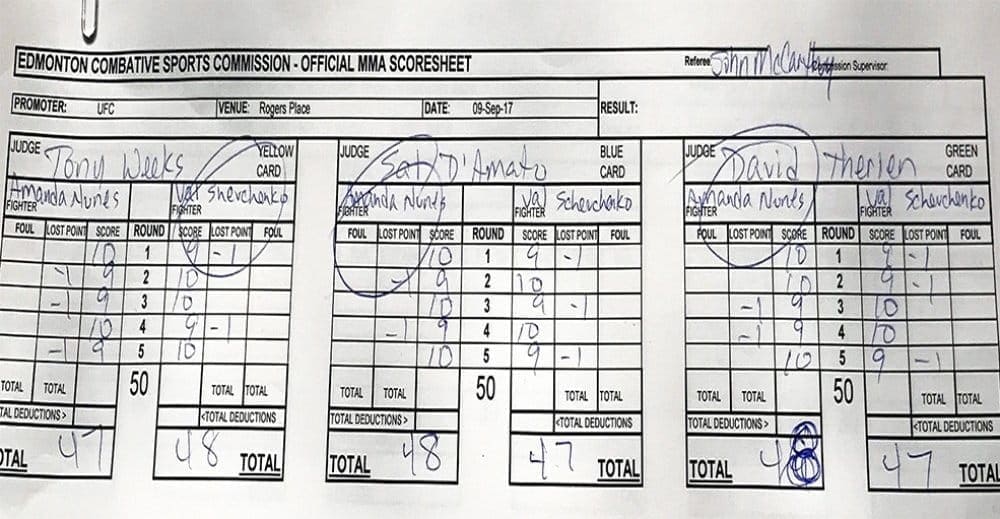 EDMONTON COMBATIVE SPORTS COMMISSION - OFFICIAL MMA SCORESHEET Referee: John McCarthy Commission Supervisor:
PROMOTER: UFC VENUE: Rogers Place DATE: 09-Sep-17 RESULT:
JUDGE Tony Weeks YELLOW CARD JUDGE Sal D'Amato BLUE CARD JUDGE David Therien GREEN CARD
Amanda Nunes Val Shevchenko Amanda Nunes Val Schevchenko Amanda Nunes Val Schevchenko
FIGHTER FIGHTER FIGHTER FIGHTER FIGHTER FIGHTER
FOUL LOST POINT SCORE ROUND SCORE LOST POINT FOUL FOUL LOST POINT SCORE ROUND SCORE LOST POINT FOUL FOUL LOST POINT SCORE ROUND SCORE LOST POINT FOUL
10 1 9 -1 10 1 9 -1 10 1 9 -1
-1 9 2 10 -1 9 2 10 10 2 9 -1
-1 9 3 10 10 3 9 -1 -1 9 3 10
10 4 9 -1 -1 9 4 10 -1 9 4 10
-1 9 5 10 10 5 9 -1 10 5 9 -1
TOTAL TOTAL 50 TOTAL TOTAL TOTAL TOTAL 50 TOTAL TOTAL TOTAL TOTAL 50 TOTAL TOTAL
TAL DEDUCTIONS > <TOTAL DEDUCTIONS TOTAL DEDUCTIONS > <TOTAL DEDUCTIONS TOTAL DEDUCTIONS > <TOTAL DEDUCTIONS
OTAL 47 48 TOTAL TOTAL 48 47 TOTAL TOTAL 48 47 TOTAL